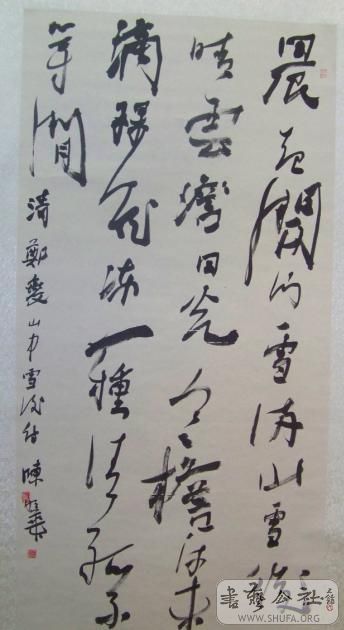 晨起開门雪满山雪
晴雲澹日光寒檐流未
滴梅花冻一種清孤不
等閒
清鄭燮山中雪後詩 陳
書藝公社
WWW.SHUFA.ORG